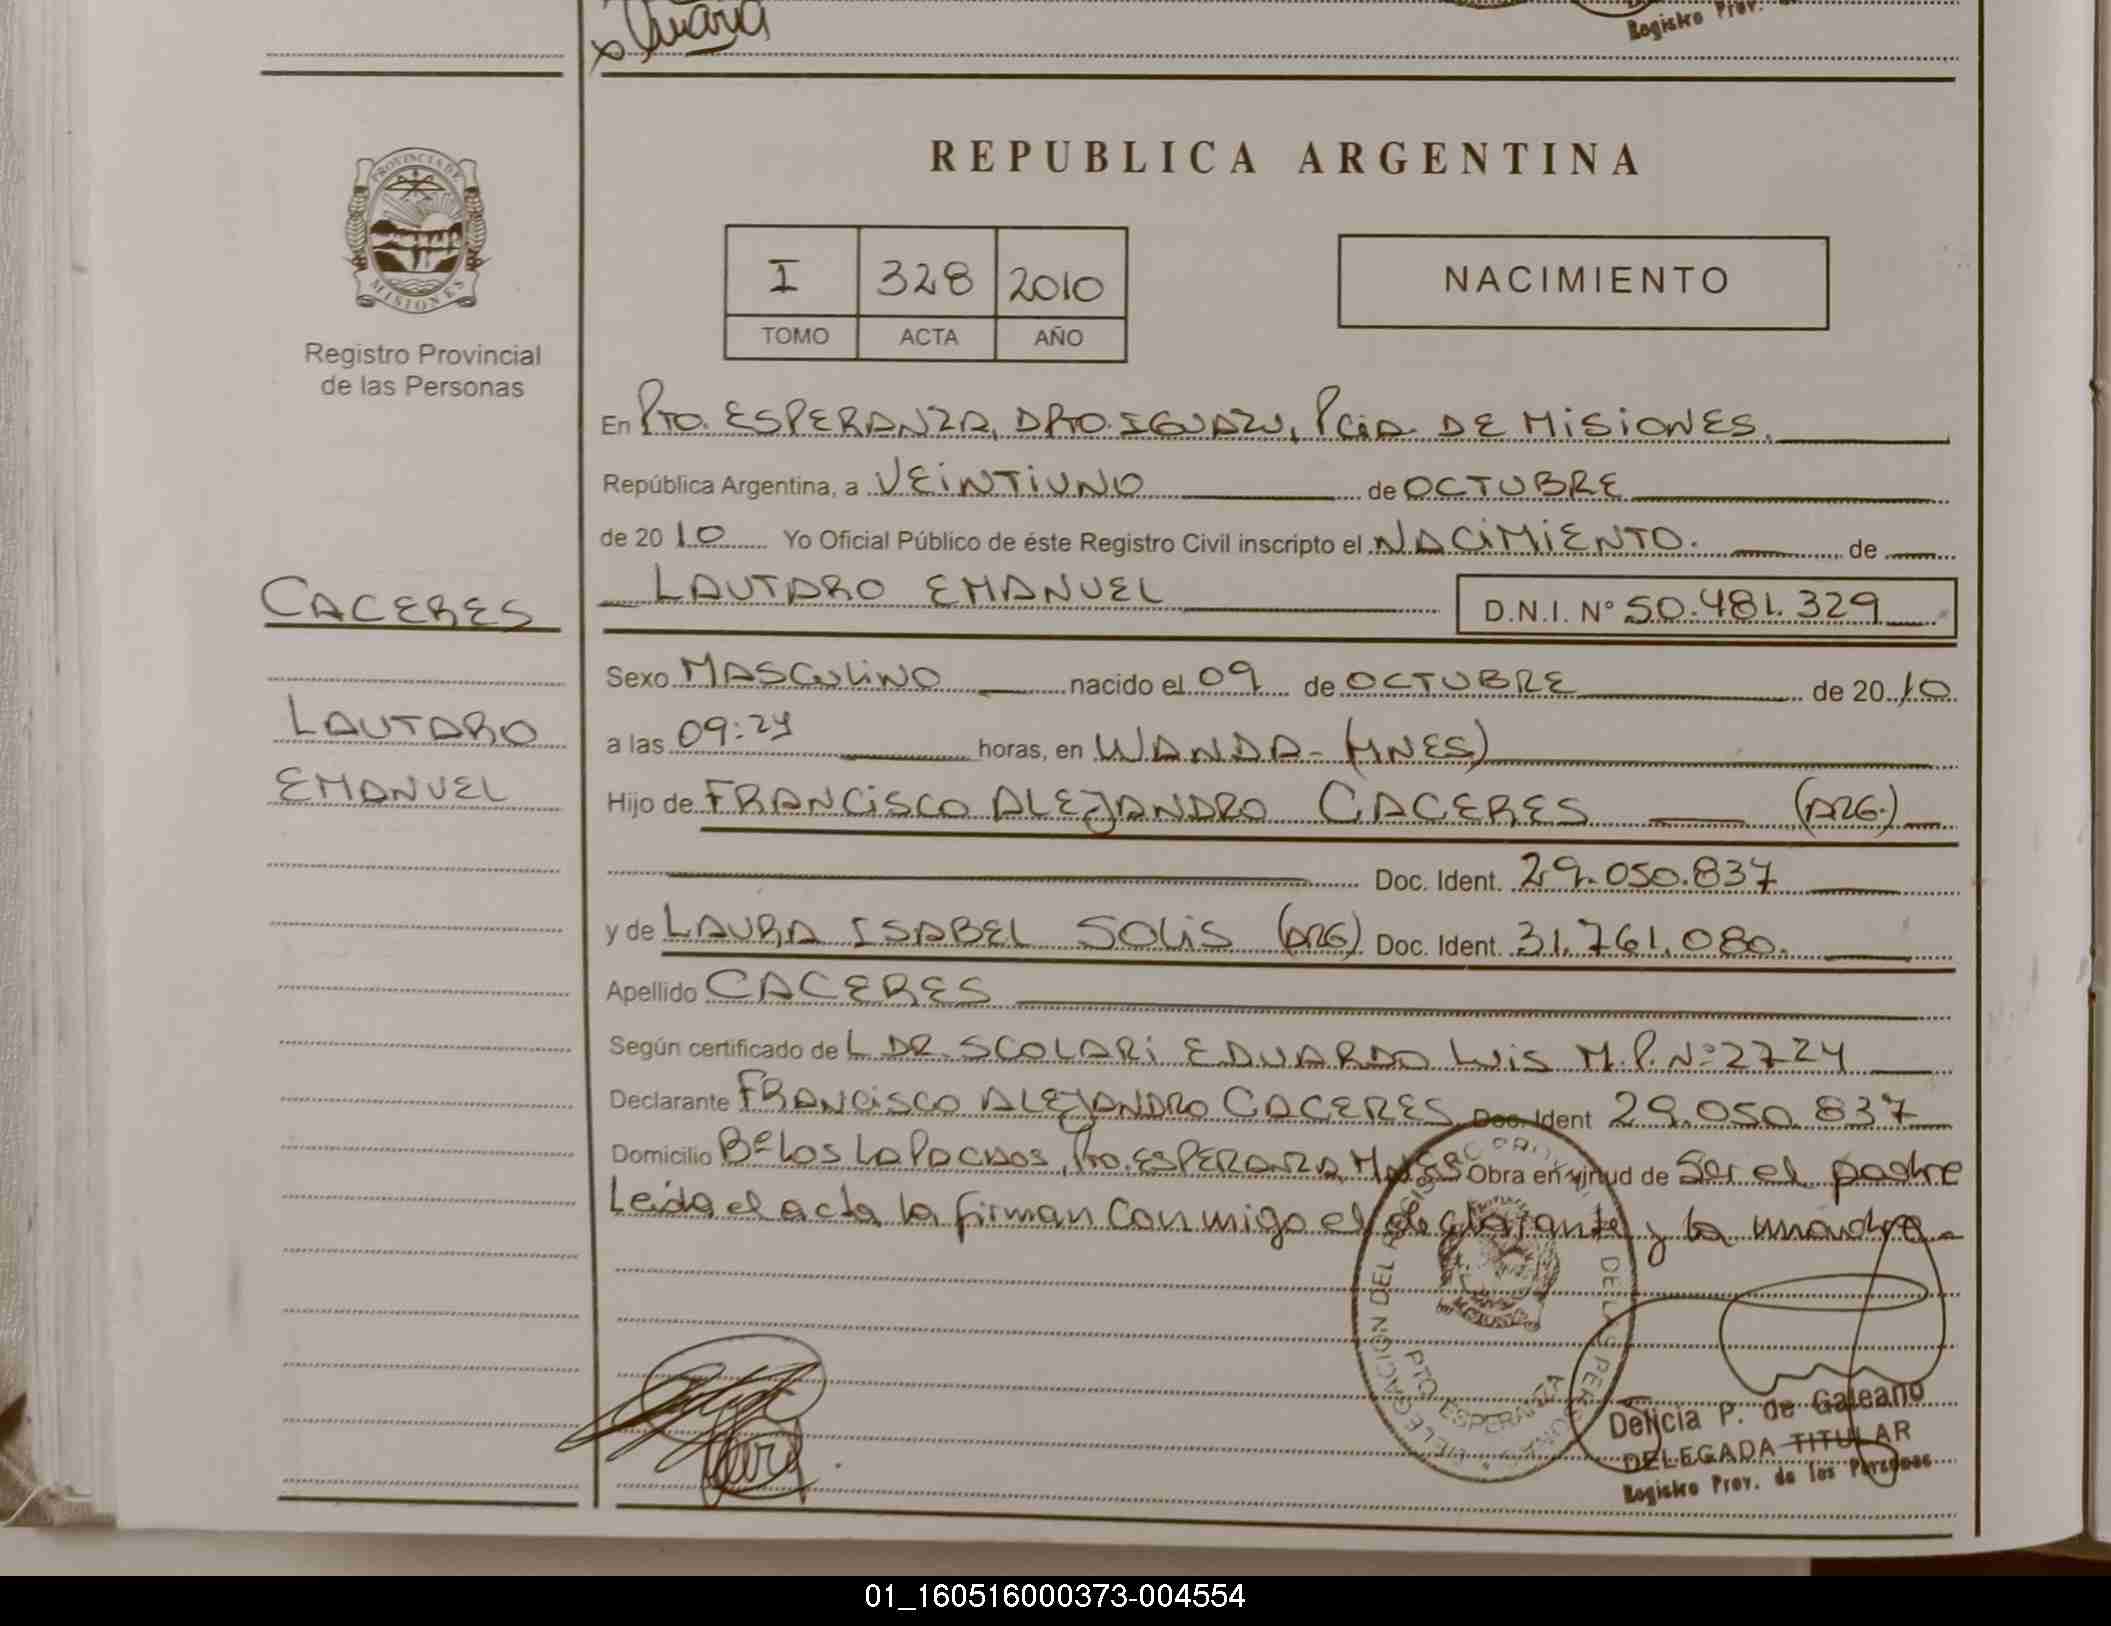 Registro Prov.
PROVINCIA DE
MISIONES
Registro Provincial
de las Personas
CACERES
LAUTARO
EMANUEL
REPUBLICA ARGENTINA
I 328 2010
TOMO ACTA AÑO
NACIMIENTO
En Pto. ESPERANZA, DPTO. IGUAZU, Pcia. DE MISIONES.
República Argentina, a VEINTIUNO de OCTUBRE
de 2010 Yo Oficial Público de éste Registro Civil inscripto el NACIMIENTO. de
LAUTARO EMANUEL D.N.I. Nº 50.481.329
Sexo MASCULINO nacido el 09 de OCTUBRE de 2010
a las 09:24 horas, en WANDA - (MNES)
Hijo de FRANCISCO ALEJANDRO CACERES (ARG.)
Doc. Ident. 29.050.837
y de LAURA ISABEL SOLIS (ARG) Doc. Ident. 31.761.080.
Apellido CACERES
Según certificado de L DR. SCOLARI EDUARDO LUIS M.P. Nº 2724
Declarante FRANCISCO ALEJANDRO CACERES Doc. Ident 29.050.837
Domicilio Bº LOS LAPACHOS, Pto. ESPERANZA, MNES Obra en virtud de Ser el padre
Leida el acta la firman conmigo el declarante y la madre
DELEGACION DEL REGISTRO PROV. DE LAS PERSONAS
PTO ESPERANZA
Delicia P. de Galeano
DELEGADA TITULAR
Registro Prov. de las Personas
01_160516000373-004554